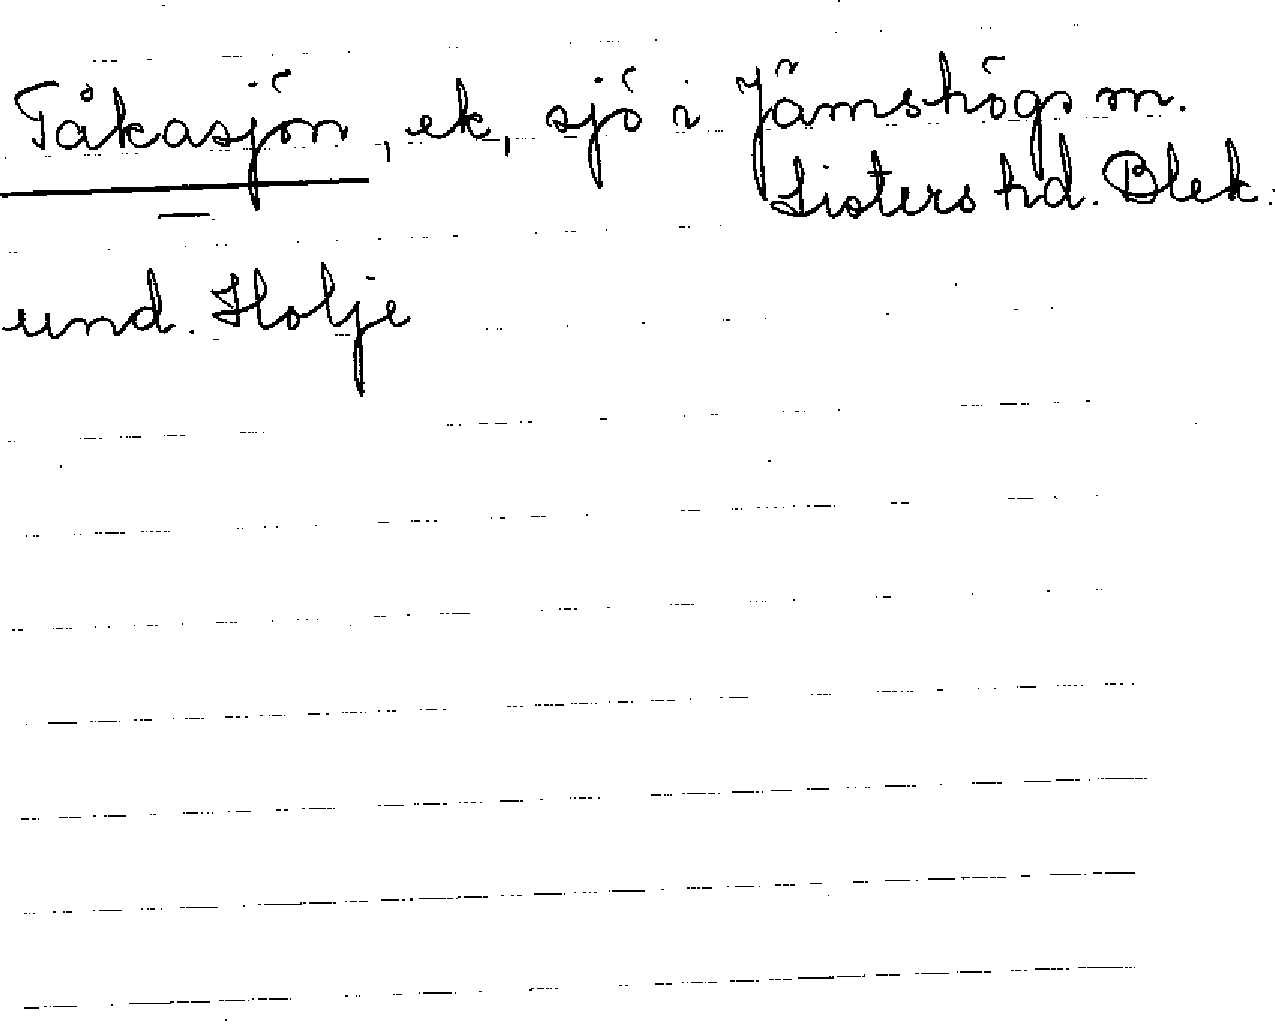 Tåkasjön, ek, sjö i Jämshögs sn.
Listers hd. Blek.
und. Holje